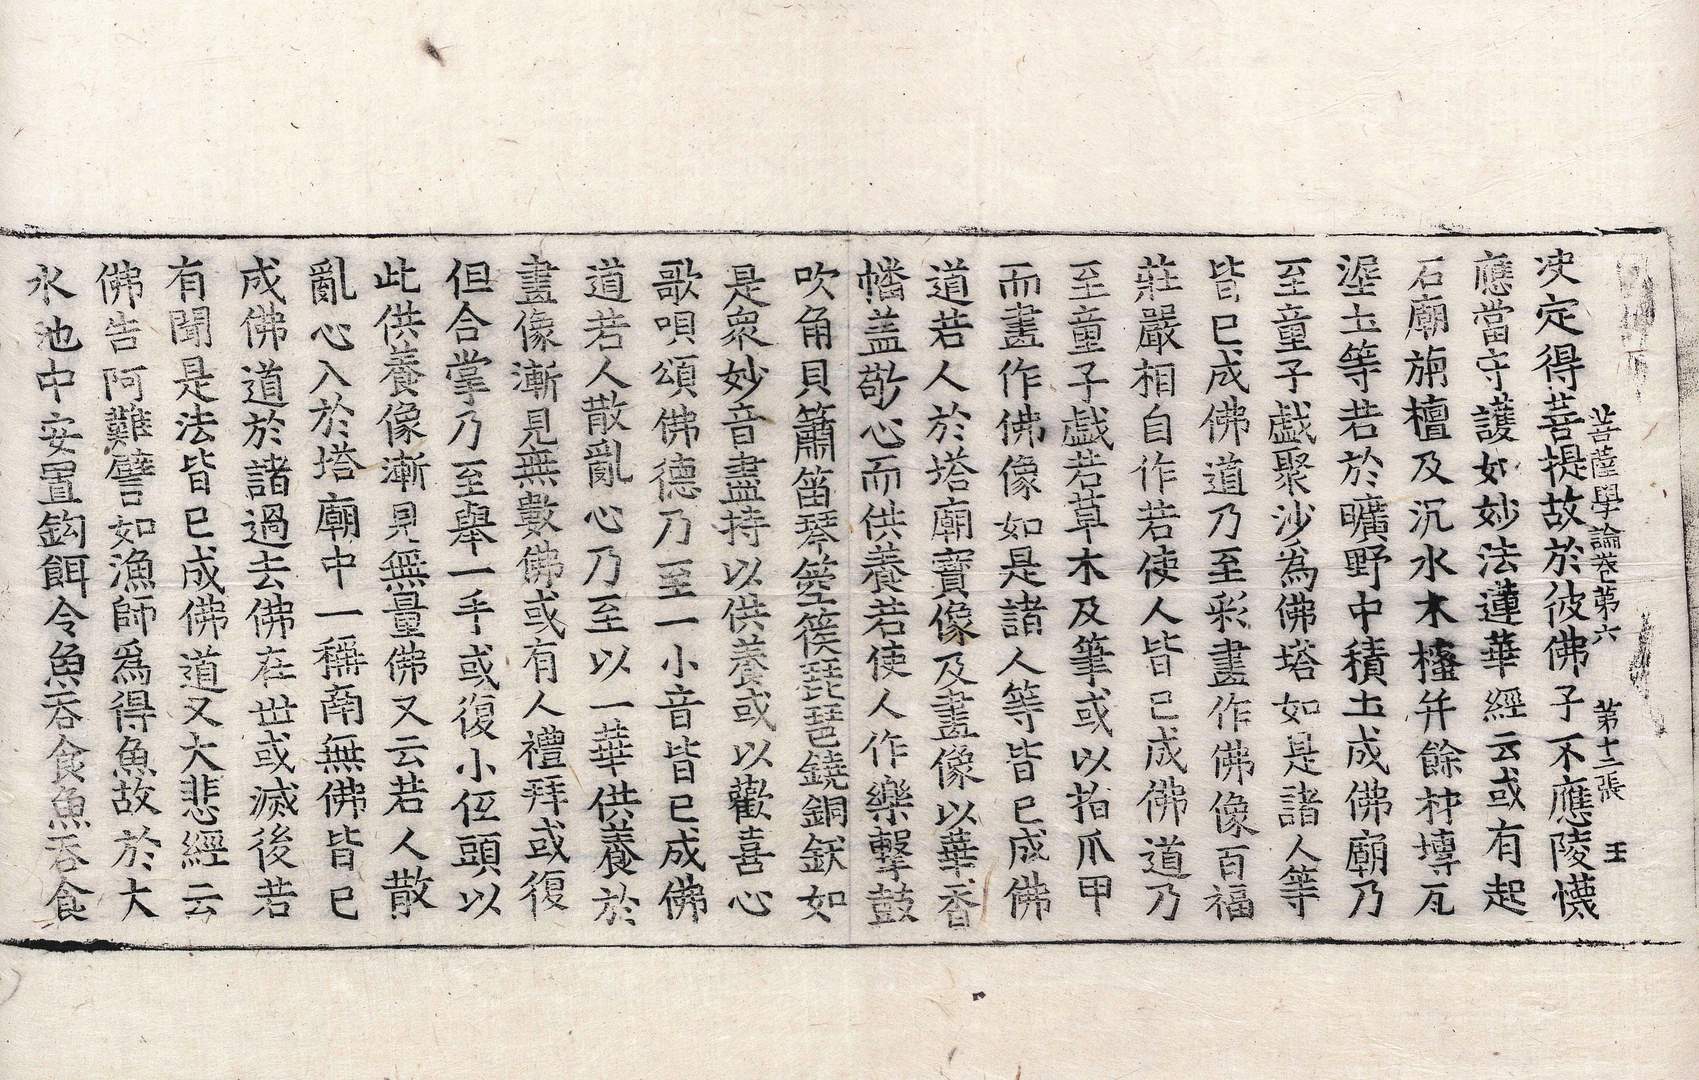 菩薩學論卷第六 第十二張 王
决定得菩提故於彼佛子不應陵懱
應當守護如妙法蓮華經云或有起
石廟旃檀及沉水木櫁幷餘材塼瓦
埿土等若於曠野中積土成佛廟乃
至童子戲聚沙為佛塔如是諸人等
皆已成佛道乃至彩畫作佛像百福
莊嚴相自作若使人皆已成佛道乃
至童子戲若草木及筆或以指爪甲
而畫作佛像如是諸人等皆已成佛
道若人於塔廟寶像及畫像以華香
幡盖敬心而供養若使人作樂擊鼓
吹角貝簫笛琴箜篌琵琶鐃銅鈸如
是衆妙音盡持以供養或以歡喜心
歌唄頌佛德乃至一小音皆已成佛
道若人散亂心乃至以一華供養於
畫像漸見無數佛或有人禮拜或復
但合掌乃至舉一手或復小低頭以
此供養像漸見無量佛又云若人散
亂心入於塔廟中一稱南無佛皆已
成佛道於諸過去佛在世或滅後若
有聞是法皆已成佛道又大悲經云
佛告阿難譬如漁師為得魚故於大
水池中安置鈎餌令魚吞食魚吞食